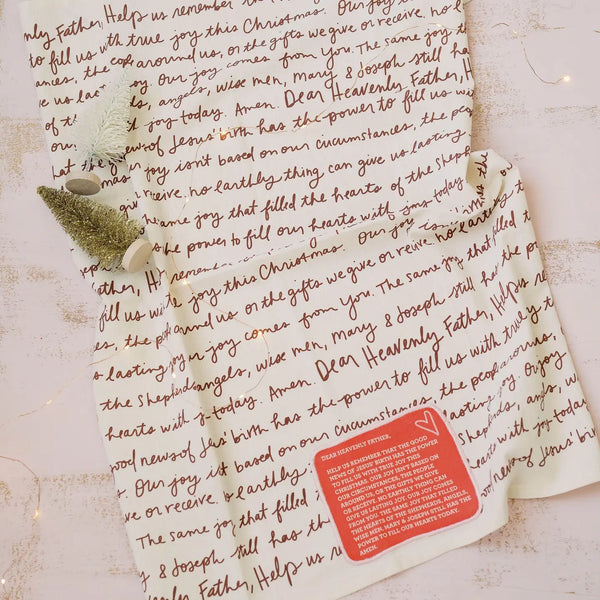 nly Father, Help us remember
to fill us with true joy this Christmas. Our joy
ances, the peop around us, or the gifts we give or receive, no
us las joy. Our joy comes from You. The same joy that
ds, angels, wise men, Mary & Joseph still has
of th joy today. Amen. Dear Heavenly Father, H
news of Jesus' birth has the power to fill us wi
r joy isn't based on our circumstances, the peop
eive, no earthly thing can give us lasting
ame joy that filled the hearts of the Sheph
he power to fill our hearts with joy today.
ather, H remember
fill us wi joy this Christmas. Our joy
ances, the p around us or the gifts we give or receive, no earthly
s lasting joy r joy comes from You. The same joy that filled t
the Shepherds angels, wise men, Mary & Joseph still has the po
hearts with j today. Amen. Dear Heavenly Father, Help us re
ood news of Jes' birth has the power to fill us with true
joy isn't based on our circumstances, the people around us,
ve or receive, no earth lasting joy. Our joy
The same joy that filled t Shepherds, angels, w
y & Joseph still has th hearts with joy toda
avenly Father, Help us r ood news of Jesus' birt
DEAR HEAVENLY FATHER,
HELP US REMEMBER THAT THE GOOD
NEWS OF JESUS' BIRTH HAS THE POWER
TO FILL US WITH TRUE JOY THIS
CHRISTMAS. OUR JOY ISN'T BASED ON
OUR CIRCUMSTANCES, THE PEOPLE
AROUND US, OR THE GIFTS WE GIVE
OR RECEIVE. NO EARTHLY THING CAN
GIVE US LASTING JOY. OUR JOY COMES
FROM YOU. THE SAME JOY THAT FILLED
THE HEARTS OF THE SHEPHERDS, ANGELS,
WISE MEN, MARY & JOSEPH STILL HAS THE
POWER TO FILL OUR HEARTS TODAY.
AMEN.